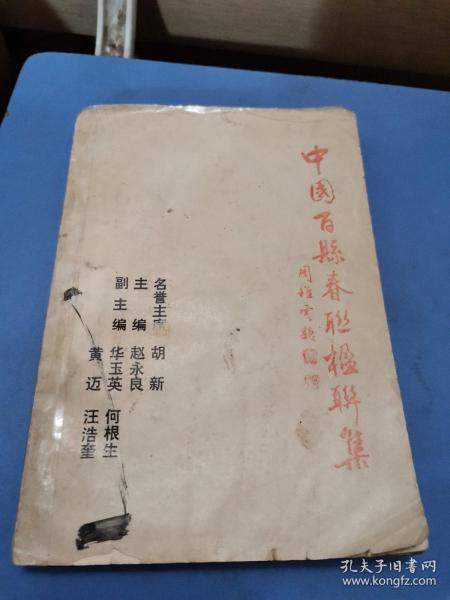 中國百縣春聯楹聯集
名誉主席 胡新
主编 赵永良
副主编 华玉英 何根生
黄迈 汪浩奎
孔夫子旧书网
www.kongfz.com